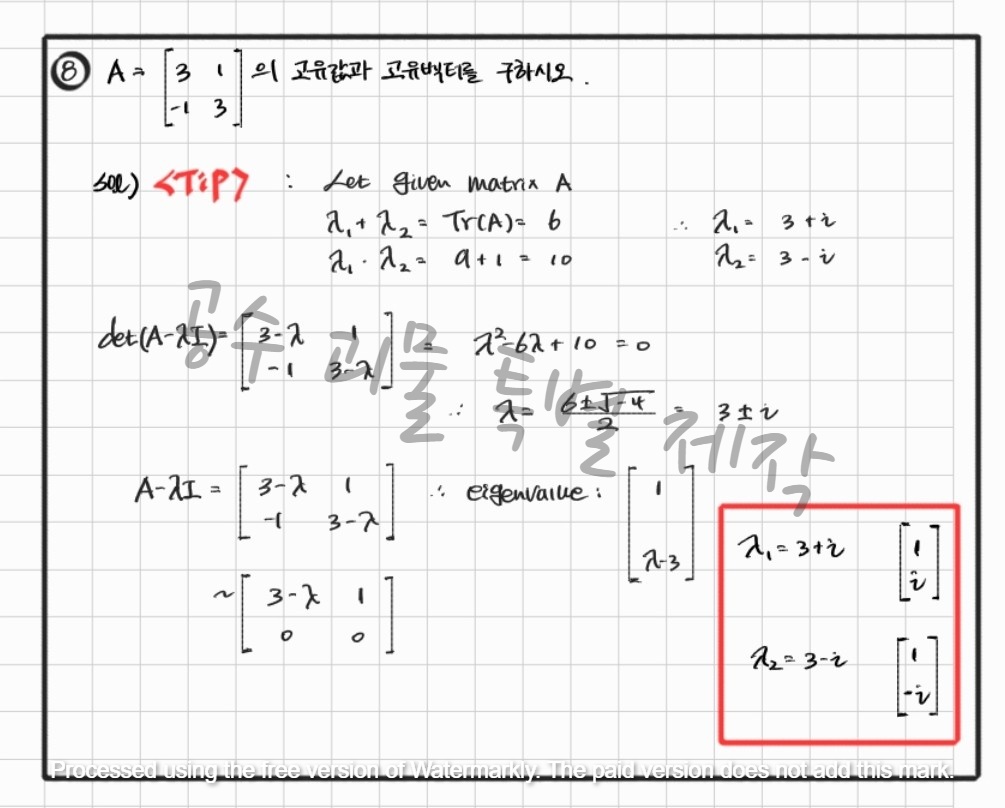 ⑧ A = [3 1; -1 3] 의 고유값과 고유벡터를 구하시오.
sol) <TiP> : Let given matrix A
λ₁ + λ₂ = Tr(A) = 6 ∴ λ₁ = 3 + i
λ₁ · λ₂ = 9 + 1 = 10 λ₂ = 3 - i
det(A-λI) = [3-λ 1; -1 3-λ] = λ²-6λ+10 = 0
∴ λ = (6±√-4)/2 = 3 ± i
공수 괴물 특발 제작
A-λI = [3-λ 1; -1 3-λ] ∴ eigenvalue : [1; λ-3]
~ [3-λ 1; 0 0]
λ₁ = 3+i [1; i]
λ₂ = 3-i [1; -i]
Processed using the free version of Watermarkly. The paid version does not add this mark.